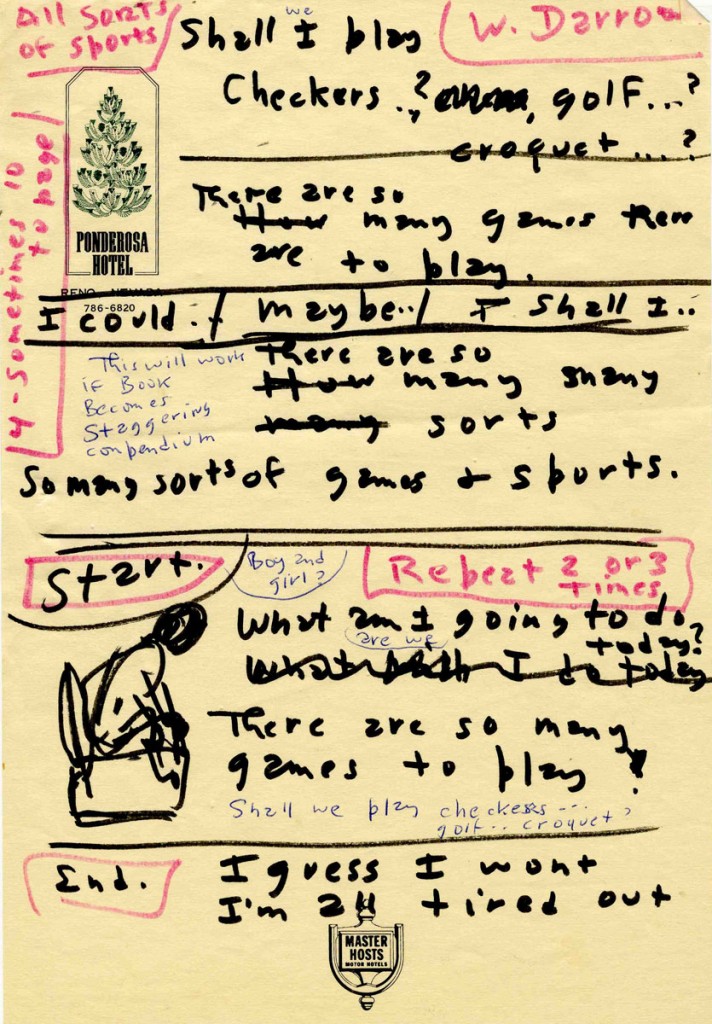 All Sorts
of Sports
W. Darrow
we
Shall I play
Checkers ..? golf...?
croquet ...?
4 - sometimes 10
to page
PONDEROSA
HOTEL
RENO, NEVADA
786-6820
There are so
How many games there
are to play.
I could../ maybe../ I shall I..
This will work
if Book
Becomes
Staggering
conpendium
There are so
How many many
many sorts
So many sorts of games + sports.
Start.
Boy and
girl?
Repeat 2 or 3
times
What am I going to do,
today?
are we
What I do today
There are so many
games to play!
Shall we play checkers ...
golf... croquet?
End.
I guess I wont
I'm all tired out
MASTER
HOSTS
MOTOR HOTELS